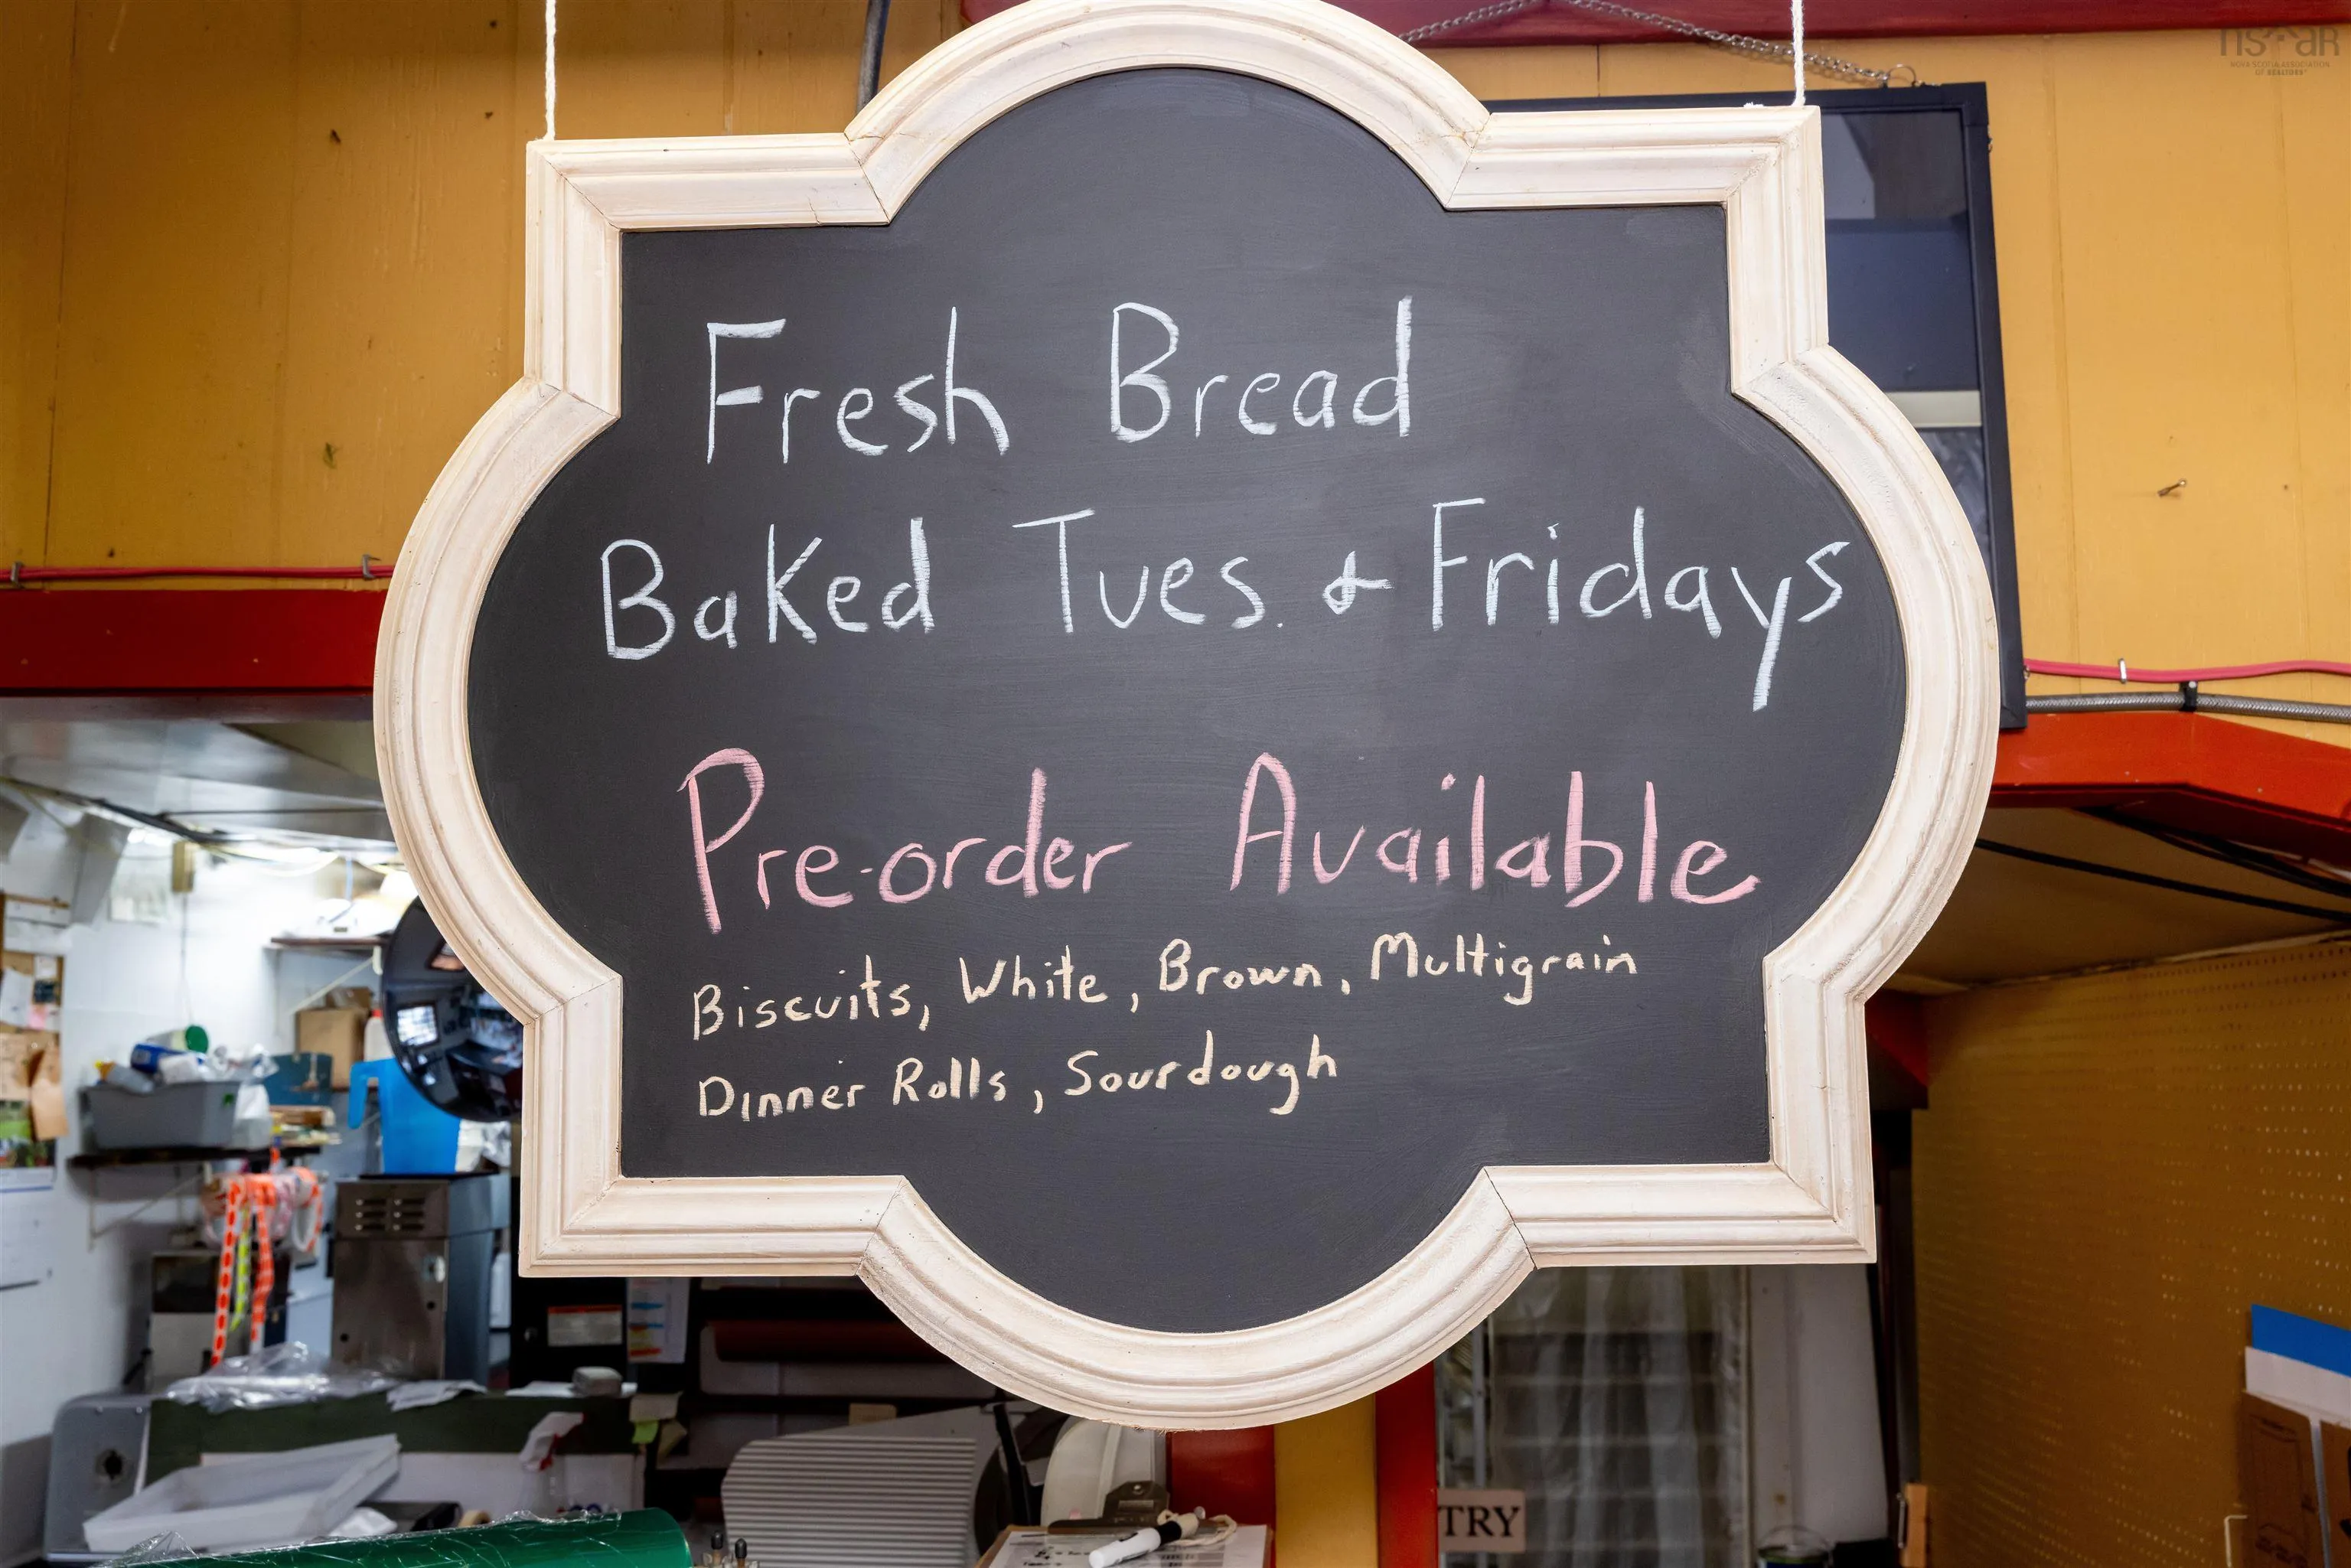 Fresh Bread
Baked Tues. & Fridays
Pre-order Available
Biscuits, White, Brown, Multigrain
Dinner Rolls, Sourdough
TRY
NOVA SCOTIA ASSOCIATION
OF REALTORS